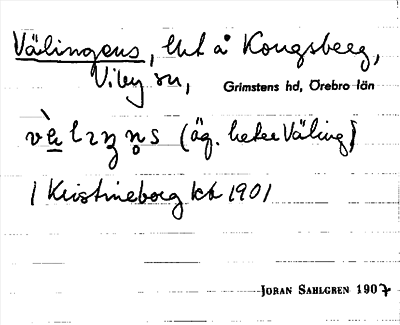 Välingens, lht å Kongsberg,
Viby sn, Grimstens hd, Örebro län
(äg. heter Väling)
1 Kristineberg kb 1901
JÖRAN SAHLGREN 1907